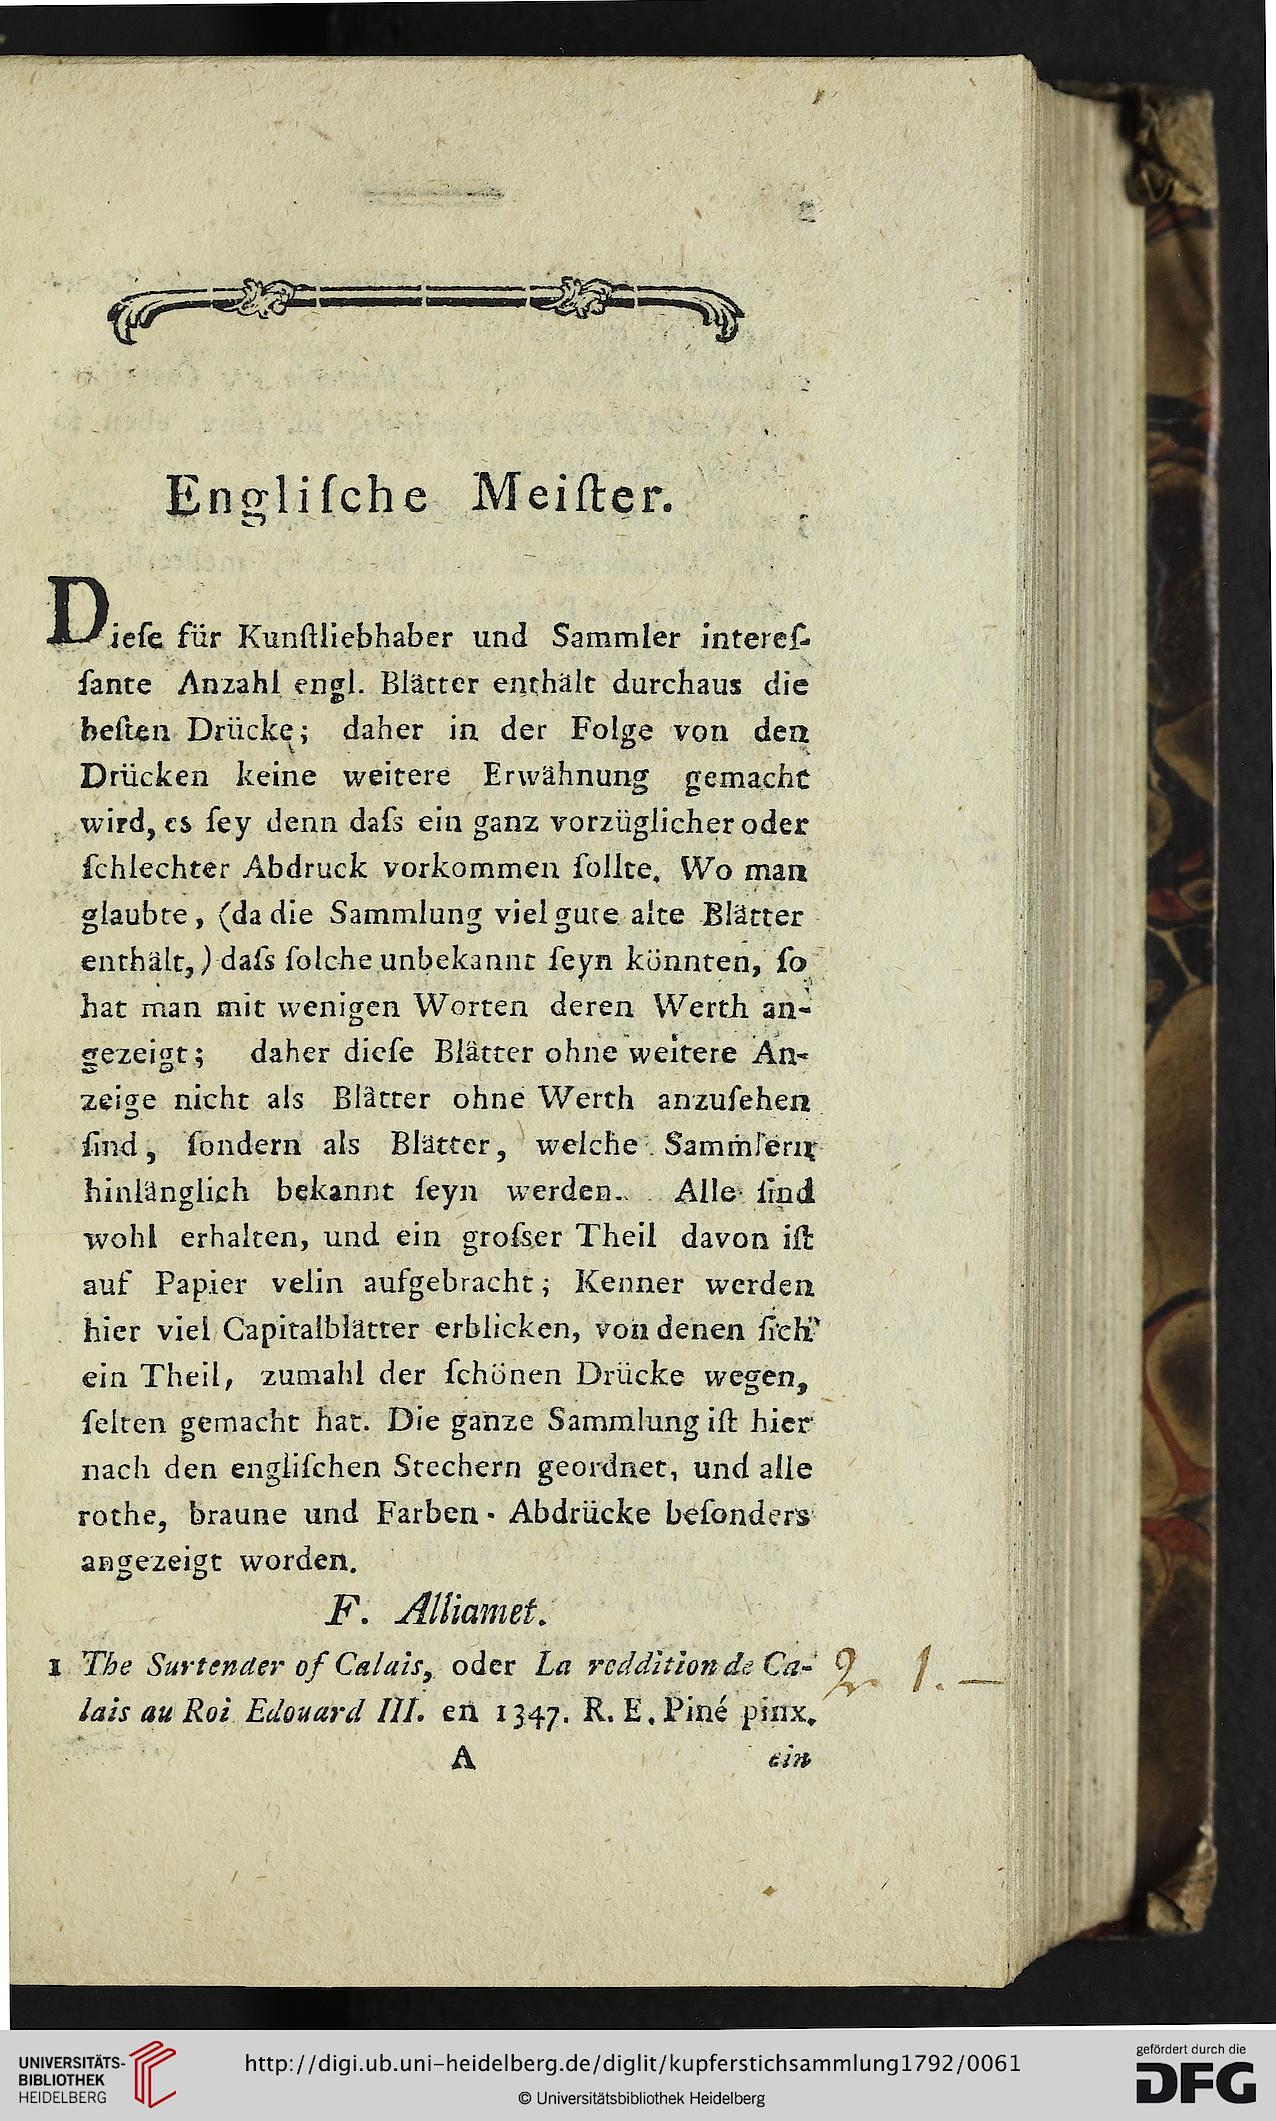 Engliſche Meiſter.
Dieſe für Kunſtliebhaber und Sammler intereſ-
ſante Anzahl engl. Blätter enthält durchaus die
beſten Drücke; daher in der Folge von den
Drücken keine weitere Erwähnung gemacht
wird, es ſey denn daſs ein ganz vorzüglicher oder
ſchlechter Abdruck vorkommen ſollte. Wo man
glaubte, (da die Sammlung viel gute alte Blätter
enthält,) daſs ſolche unbekannt ſeyn könnten, ſo
hat man mit wenigen Worten deren Werth an-
gezeigt; daher dieſe Blätter ohne weitere An-
zeige nicht als Blätter ohne Werth anzuſehen
ſind, ſondern als Blätter, welche Sammlern
hinlänglich bekannt ſeyn werden. Alle ſind
wohl erhalten, und ein groſser Theil davon iſt
auf Papier velin aufgebracht; Kenner werden
hier viel Capitalblätter erblicken, von denen ſich
ein Theil, zumahl der ſchönen Drücke wegen,
ſelten gemacht hat. Die ganze Sammlung iſt hier
nach den engliſchen Stechern geordnet, und alle
rothe, braune und Farben-Abdrücke beſonders
angezeigt worden.
F. Alliamet.
1 The Surtender of Calais, oder La reddition de Ca- 1.—
lais au Roi Edouard III. en 1347. R. E. Piné pinx.
A ein
UNIVERSITÄTS-
BIBLIOTHEK
HEIDELBERG
http://digi.ub.uni-heidelberg.de/diglit/kupferstichsammlung1792/0061
© Universitätsbibliothek Heidelberg
gefördert durch die
DFG